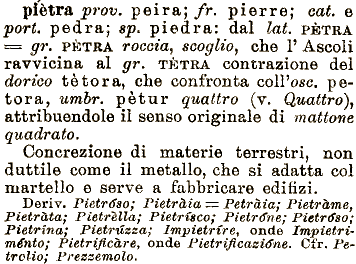 piètra prov. peira; fr. pierre; cat. e
port. pedra; sp. piedra: dal lat. PÈTRA
= gr. PÈTRA roccia, scoglio, che l' Ascoli
ravvicina al gr. TÈTRA contrazione del
dorico tètora, che confronta coll'osc. pe-
tora, umbr. pètur quattro (v. Quattro),
attribuendole il senso originale di mattone
quadrato.
Concrezione di materie terrestri, non
duttile come il metallo, che si adatta col
martello e serve a fabbricare edifizi.
Deriv. Pietróso; Pietràia = Petràia; Pietràme,
Pietràta; Pietrèlla; Pietrísco; Pietróne; Pietróso;
Pietrina; Pietrúzza; Impietríre, onde Impietri-
ménto; Pietrificàre, onde Pietrificazióne. Cfr. Pe-
trolio; Prezzemolo.